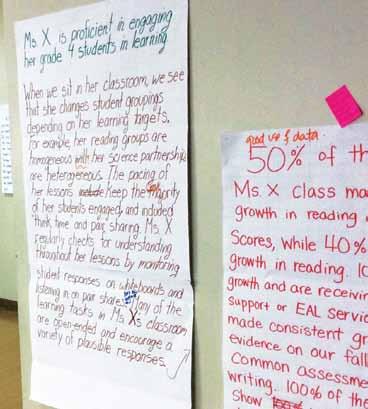 Ms. X is proficient in engaging
her grade 4 students in learning
When we sit in her classroom, we see
that she changes student groupings
depending on her learning targets.
For example, her reading groups are
homogeneous with her science partnerships
are heterogeneous. The pacing of
her lessons keep the majority
of her students engaged, and included
think time and pair sharing. Ms. X
regularly checks for understanding
throughout her lessons by monitoring
student responses on whiteboards and
listening in on pair share. Many of the
learning tasks in Ms. X's classroom
are open-ended and encourage a
variety of plausible responses.
good use of data
50% of th
Ms. X class ma
growth in reading
Scores, while 40%
growth in reading. 10
growth and are receivin
support or EAL servic
made consistent gr
evidence on our fall
Common assessme
writing. 100% of the
show